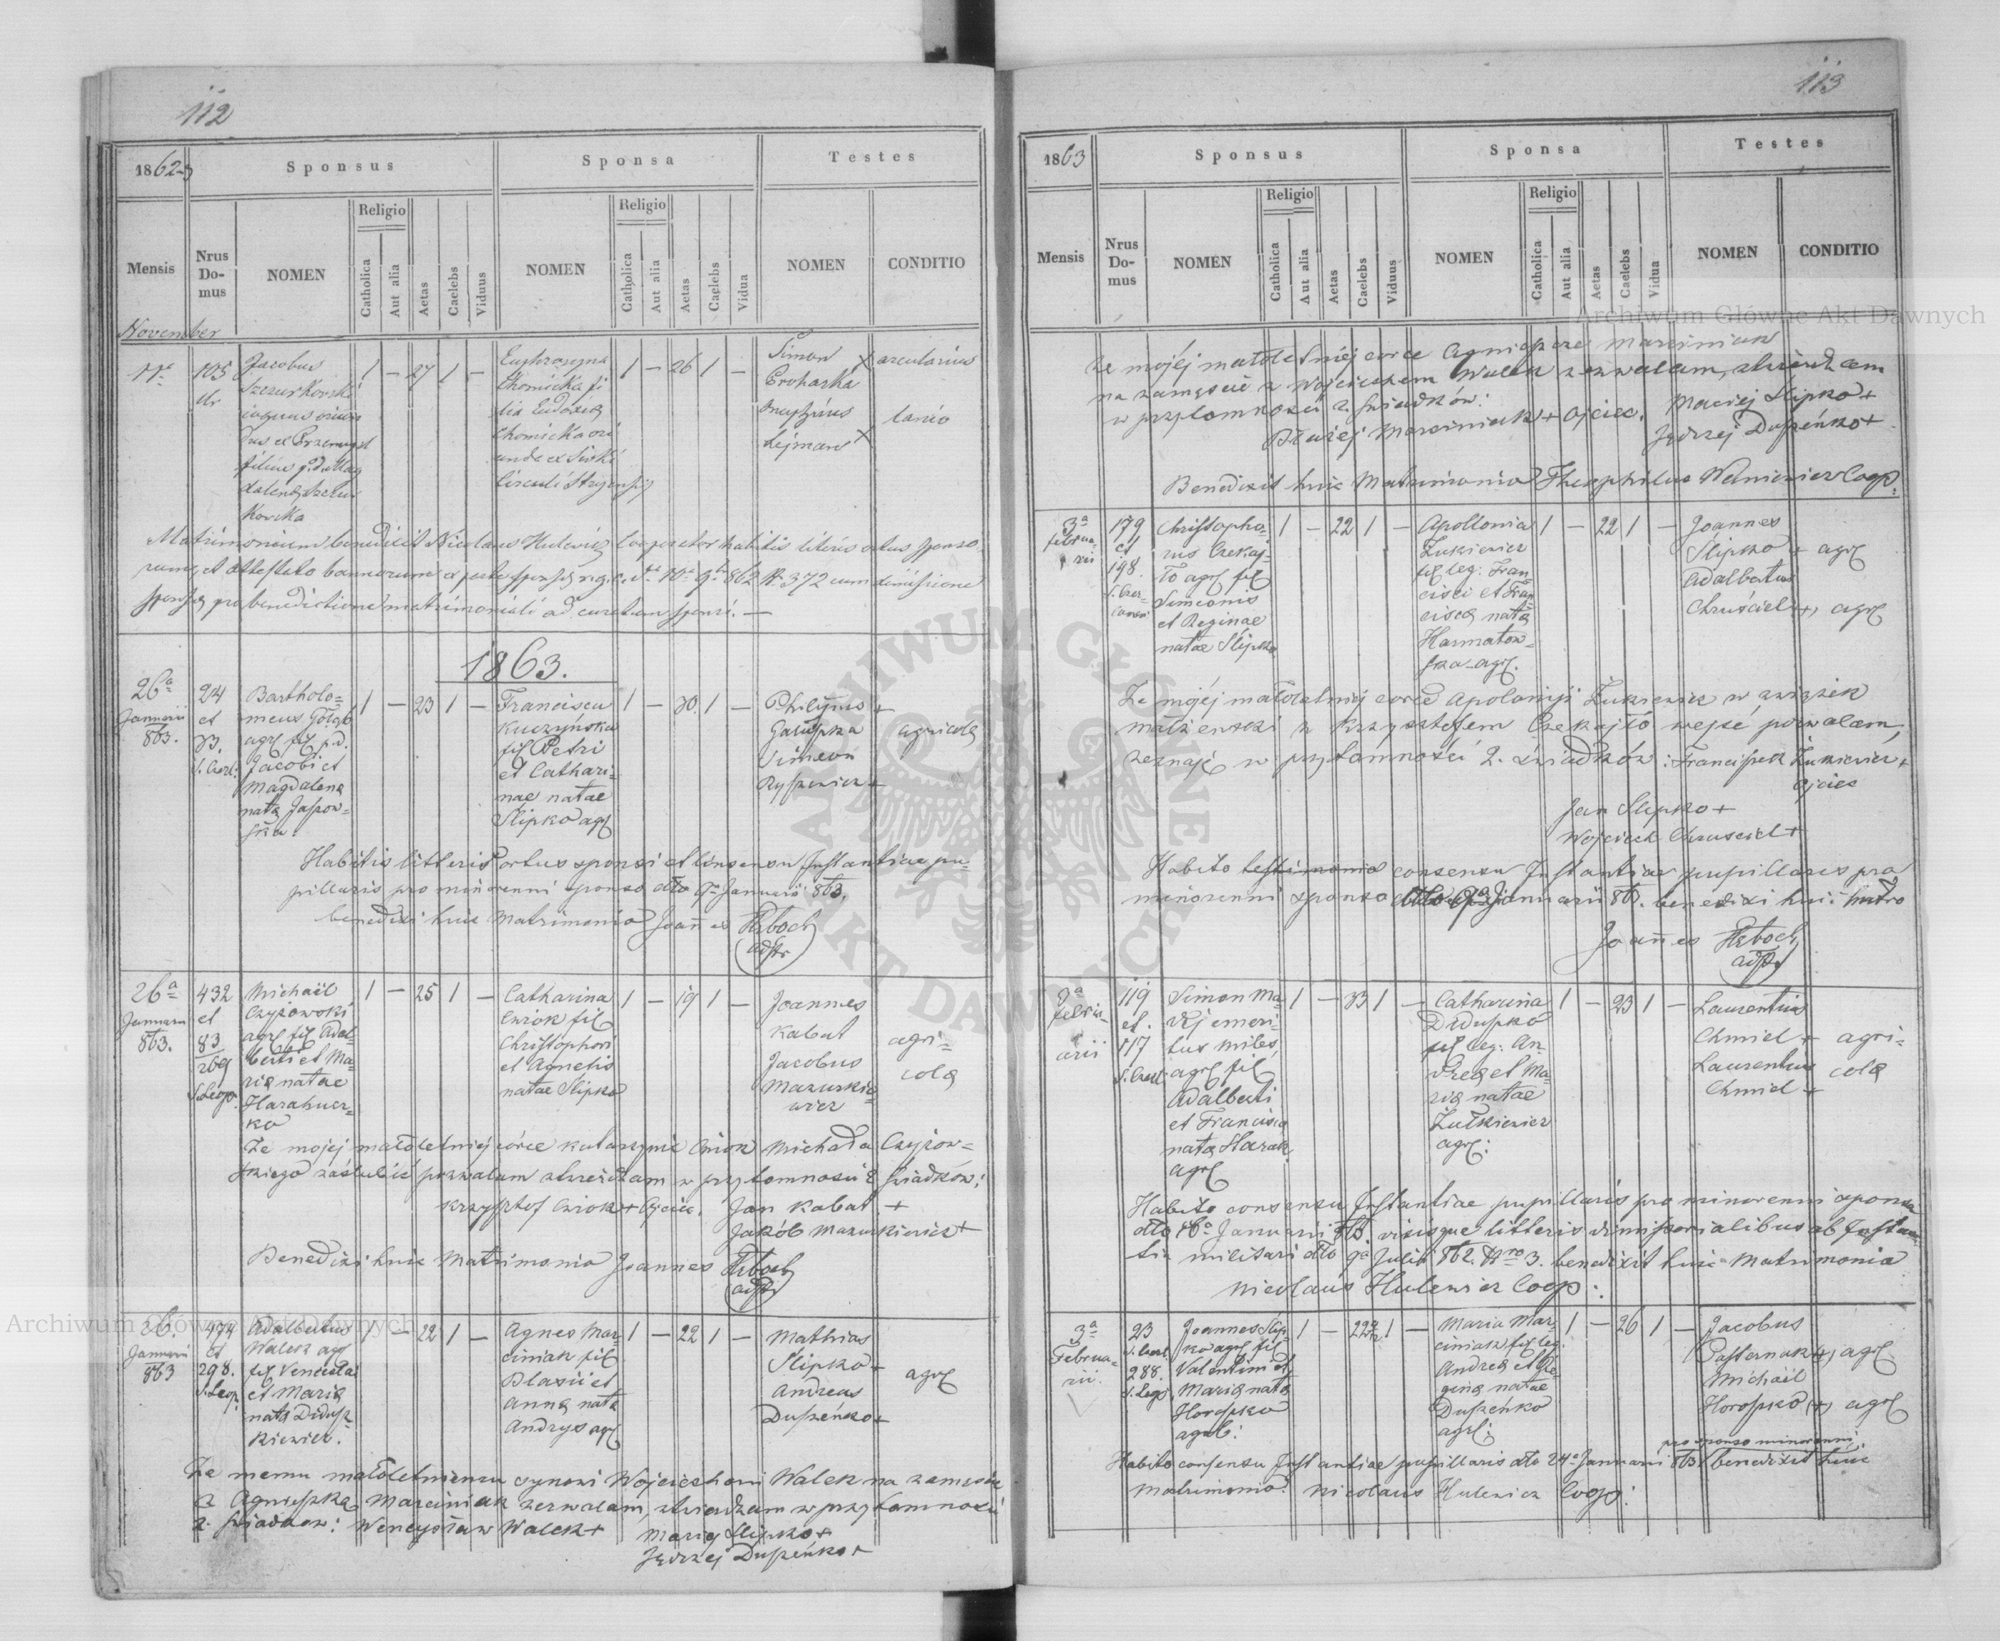 112
1862-3
Sponsus
Sponsa
Testes
Mensis
Nrus Do-mus
NOMEN
Religio
Catholica
Aut alia
Aetas
Caelebs
Viduus
NOMEN
Religio
Catholica
Aut alia
Aetas
Caelebs
Vidua
NOMEN
CONDITIO
November
11ª
105
Jacobus
1 — 27 1 —
Euphrosyna
Chomicka fi
lia Eudoxia
Chomicka ori
unda ex
Circuli Stryensis
1 — 26 1 —
Simon
Prohaska
arcularius
Onuphrius
Lejman
lanio
Matrimonium benedixit Nicolaus Hulewicz Cooperator habitis literis ortus sponso
rum, et attestato bannorum ex parte sponsæ
862 N. 372 cum dimissione
sponsæ pro benedictione matrimoniali ad curatum sponsi. —
1863.
26ª
Januarii
863.
24
et
83.
Bartholo-
meus Gołąb
agr. fil. p.d.
Jacobi et
Magdalena
nata Jasow-
ska.
1 — 23 1 —
Francisca
Kuczyńska
fil. Petri
et Cathari-
nae natae
Slipko agr.
1 — 30. 1 —
Philipus +
Galuszka
Simeon
Ryszewicz +
agricolæ
Habitis litteris ortus sponsi et consensu Instantiae pu-
pillaris pro minorenni sponso dto 9ª Januarii 863,
benedixi huic Matrimonio Joannes Hrboch
adstr
26ª
Januarii
863.
432
et
83
269
S. Leop.
Michaël
Czyżowski
agr. fil. Adal-
berti et Ma-
riæ natae
1 — 25 1 —
Catharina
Cwiok fil.
Christophori
et Agnetis
natae Slipko
1 — 19 1 —
Joannes
Kabat
Jacobus
Mazurkie-
wicz
agri-
colæ
Że mojej małoletniej córce Katarzynie Cwiok Michała Czyżow-
skiego zaślubić pozwalam stwierdzam w przytomności 2 świadków:
Krzysztof Cwiok + Ojciec. Jan Kabat. +
Jakób Mazurkiewicz +
Benedixi huic Matrimonio Joannes Hrboch
adstr
26.
Januarii
863
474
et
298.
S. Leop.
Adalbertus
Walek agr.
fil. Venceslai
et Maria
nata Dudusz
kiewicz.
1 — 22 1 —
Agnes Mar-
ciniak fil.
Blasii et
Anna nata
Andrys agr.
1 — 22 1 —
Mathias
Slipko +
Andreas
Duszeńko +
agr.
Że memu małoletniemu synowi Wojciechowi Walek na zamęście
z Agnieszką Marciniak zezwalam, stwierdzam w przytomności
2. świadków: Wencysław Walek + Maciej Slipko +
Jędrzej Duszeńko +
113
1863
Sponsus
Sponsa
Testes
Mensis
Nrus Do-mus
NOMEN
Religio
Catholica
Aut alia
Aetas
Caelebs
Viduus
NOMEN
Religio
Catholica
Aut alia
Aetas
Caelebs
Vidua
NOMEN
CONDITIO
Że mojéj małoletniéj córce Agnieszce Marciniak
na zamęście z Wojciechem Walek zezwalam, stwierdzam
w przytomności 2. świadków: Maciej Slipko +
Błażej Marciniak + Ojciec. Jędrzej Duszeńko +
Benedixit huic Matrimonio Theophilus Coop.
3ª
Februa-
rii
179
et
198.
Christopho-
rus Czekaj-
Ło agr. fil.
Simeonis
et Reginae
natae Slipko
1 — 22 1 —
Apollonia
Żukiewicz
fil. leg. Fran-
cisci et Fran-
cisca nata
Harmatow-
ska agr.
1 — 22 1 —
Joannes
Slipko + agr.
Adalbertus
Chruściel +, agr.
Że mojéj małoletniej córce Apolonji Żukiewicz w związek
małżenski z Krzysztofem Czekajło wejść pozwalam,
zeznaję w przytomności 2. świadków: Franciszek Żukiewicz +
Ojciec
Jan Slipko +
Wojciech Chrusciel +
Habito testimonio consensu Instantiae pupillaris pro
minorenni sponso dto 9ª Januarii 863. benedixi huic
Joannes Hrboch
adstr
2ª
Februarii
119
et.
117
Simon Ma-
emeri-
tus miles,
agr. fil.
Adalberti
et Francisca
nata
agr.
1 — 33 1 —
Catharina
Dziduszko
fil. leg. An-
dreæ et Ma-
riæ natae
Żułkiewicz
agr.
1 — 23 1 —
Laurentius
Chmiel + agri-
Laurentius colæ
Chmiel +
Habito consensu Instantiae pupillaris pro minorenni sponsa
dto Januarii 863. visisque litteris dimissorialibus ab Instan-
tia militari dto 9ª Julii 862. Nro 3. benedixit huic Matrimonio
Nicolaus Hulewicz Coop:.
3ª
Februa-
rii.
23
288.
S. Leop.
Joannes Slip-
ko agr. fil.
Valentini et
Maria nata
Horoszko
agr.
1 — 22 1 —
Maria Mar-
ciniak fil. leg.
Andrea et Re-
gina natae
Duszeńko
agr.
1 — 26 1 —
Jacobus
Pasternak +, agr.
Michaël
Horoszko (+) agr.
Habito consensu Instantiae pupillaris dto 24ª Januarii 863 pro sponso minorenni benedixit huic
matrimonio. Nicolaus Hulewicz Coop:
Archiwum Główne Akt Dawnych
Archiwum Główne Akt Dawnych
ARCHIWUM GŁÓWNE AKT DAWNYCH